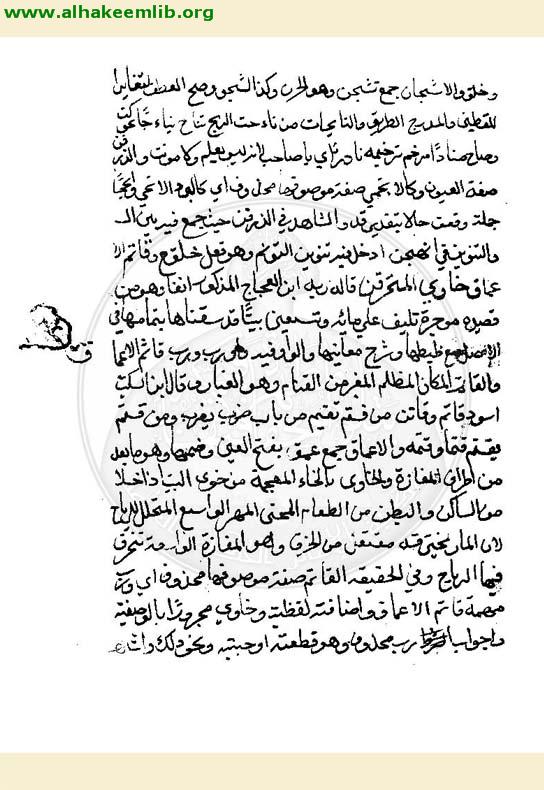 www.alhakeemlib.org
وخلق والاشجان جمع تشجن وهو الحزن وكذا الشجو وصح العطف لتغاير
للفظين والمدرج الطريق والنائحات من ناحت الريح
وصاح منادا مرخم ترخيمه نادر اي يا صاحب لانه ليس بعلم
صفة العيون وكالاتحمي صفة موصوفها محذوف اي كالبرد الاتحمي وانهجا
جملة وقعت حالا بتقدير قد والشاهد في الذرفن حيث جمع فيه بين الـ
والتنوين في انهجن ادخل فيه تنوين الترنم وهو فعل خلق ع وقاتم الا
عماق خاوي المخترقن قاله رؤبة ابن العجاج المذكور انفا وهو من
قصيده مرجزة تنيف على مائه وسبعين بيتا قد سقناها بتمامها في
الاصل مع ضبطها وشرح معانيها والواو فيه واو رب ورب قاتم الاعما
والقاتم المكان المظلم المغبر من القتام وهو الغبار وقال ابن السكيت
اسود قاتم وقاتن من قتم يقتم من باب ضرب يضرب ومن قتم
يقتم قتما وقتمه والاعماق جمع عمق بفتح العين وضمها وهو ما بعد
من اطراف المفازة والخاوي بالخاء المعجمة من خوي البيت اذا خلا
من الساكن والبطن من الطعام المخترق الممر الواسع المتخلل للرياح
لان المار يخترقه مفتعل من الخرق وهو المفازة الواسعة تنخرق
فيها الرياح وفي الحقيقه القاتم صفة موصوفها محذوف اي ورب
مهمة قاتم الاعماق واضافته لفظية وخاوي مجرور بالوصفية
وجواب رب محذوف وهو قطعته او جبتبه ونحو ذلك